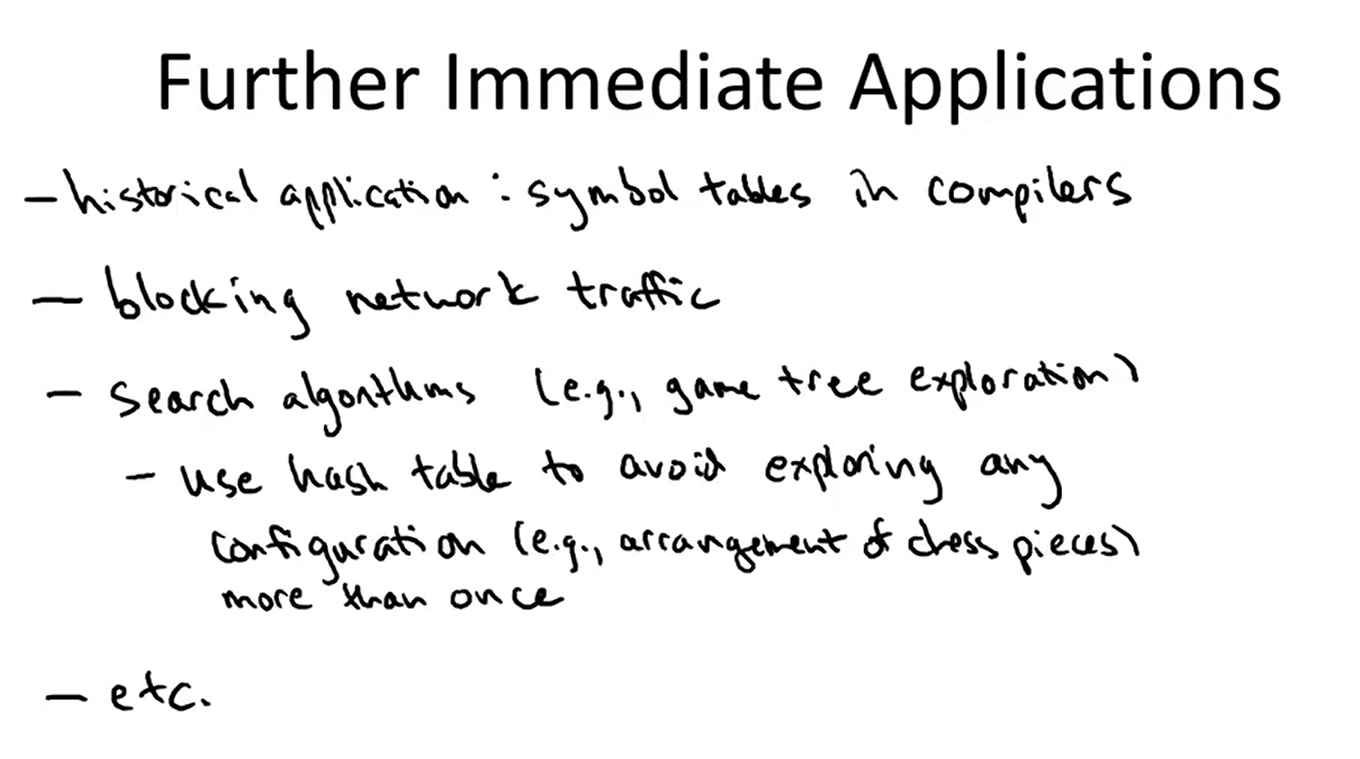 Further Immediate Applications
- historical application : symbol tables in compilers
- blocking network traffic
- search algorithms (e.g., game tree exploration)
- use hash table to avoid exploring any
configuration (e.g., arrangement of chess pieces)
more than once
- etc.